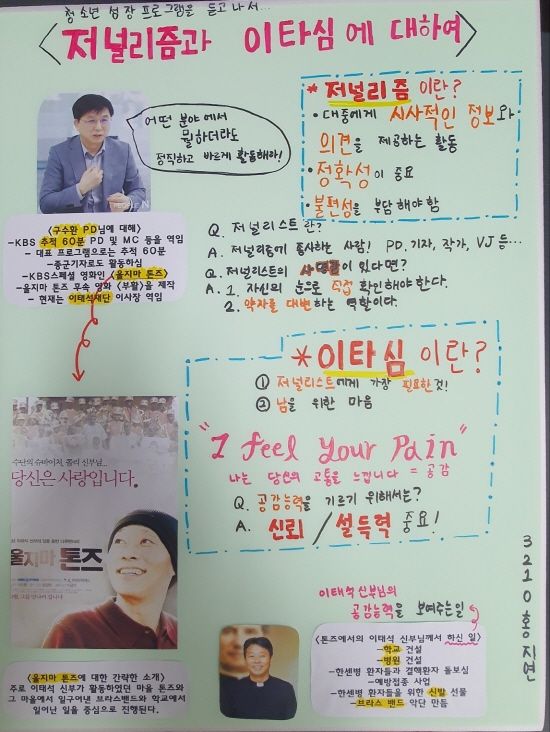 청소년 성장 프로그램을 듣고나서...
<저널리즘과 이타심에 대하여>
어떤 분야에서
뭘하더라도
정직하고 바르게 활동해라!
PEOPLE N
<구수환 PD님에 대해>
-KBS 추적 60분 PD 및 MC 등을 역임
- 대표 프로그램으로는 추적 60분
-종군기자로도 활동하심
-KBS스페셜 영화인 <울지마 톤즈>
-울지마 톤즈 후속 영화 <부활>을 제작
- 현재는 이태석재단 이사장 역임
* 저널리즘 이란?
• 대중에게 시사적인 정보와
의견을 제공하는 활동
• 정확성이 중요
• 불편성을 부담해야함
Q. 저널리스트란?
A. 저널리즘에 종사하는 사람! PD, 기자, 작가, VJ 등...
Q. 저널리스트의 사명감이 있다면?
A. 1. 자신의 눈으로 직접 확인해야한다.
2. 약자를 대변하는 역할이다.
* 이타심 이란?
① 저널리스트에게 가장 필요한것!
② 남을 위한 마음
"I feel Your Pain"
나는 당신의 고통을 느낍니다 = 공감
Q. 공감능력을 기르기 위해서는?
A. 신뢰 / 설득력 중요!
수단의 슈바이처, 쫄리 신부님...
당신은 사랑입니다.
울지마 톤즈
<울지마 톤즈에 대한 간략한 소개>
주로 이태석 신부가 활동하였던 마을 톤즈와
그 마을에서 일구어낸 브라스밴드와 학교에서
일어난 일을 중심으로 진행된다.
이태석 신부님의
공감능력을 보여주는일
<톤즈에서의 이태석 신부님께서 하신 일>
-학교 건설
-병원 건설
-한센병 환자들과 결핵환자 돌보심
-예방접종 사업
-한센병 환자들을 위한 신발 선물
-브라스 밴드 악단 만듦
3210 홍지연